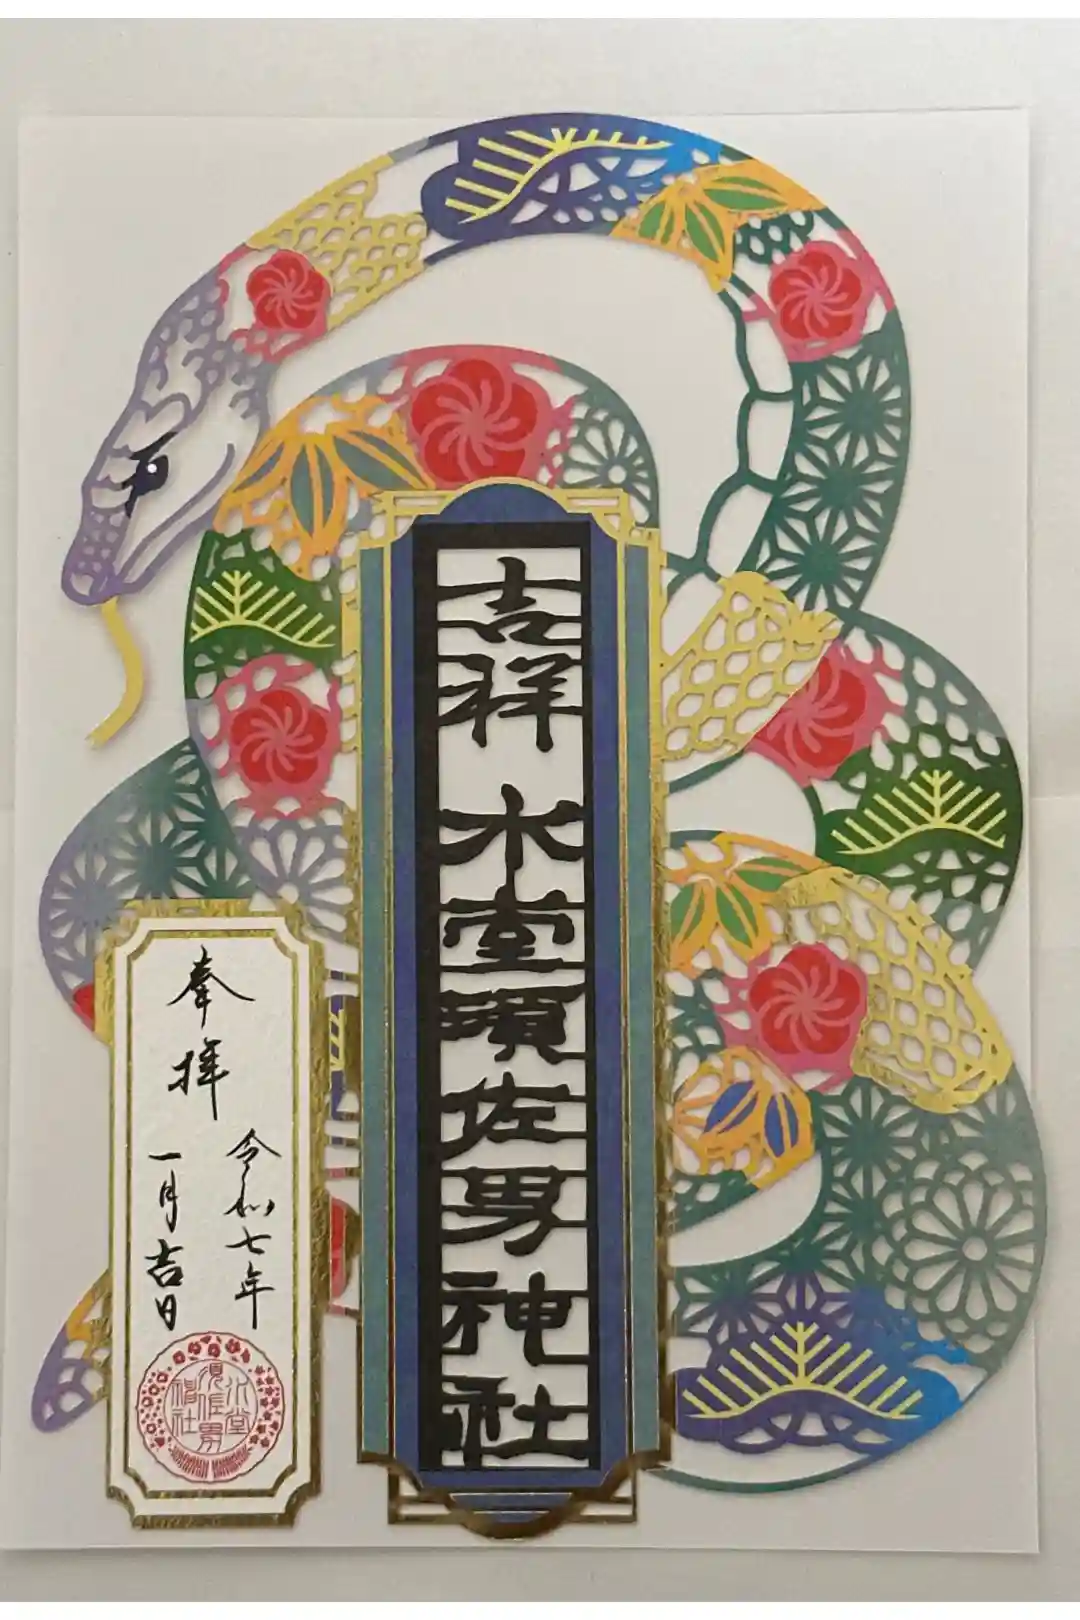 吉祥 水堂須佐男神社
奉拝
令和七年
一月吉日
水堂
須佐男
神社